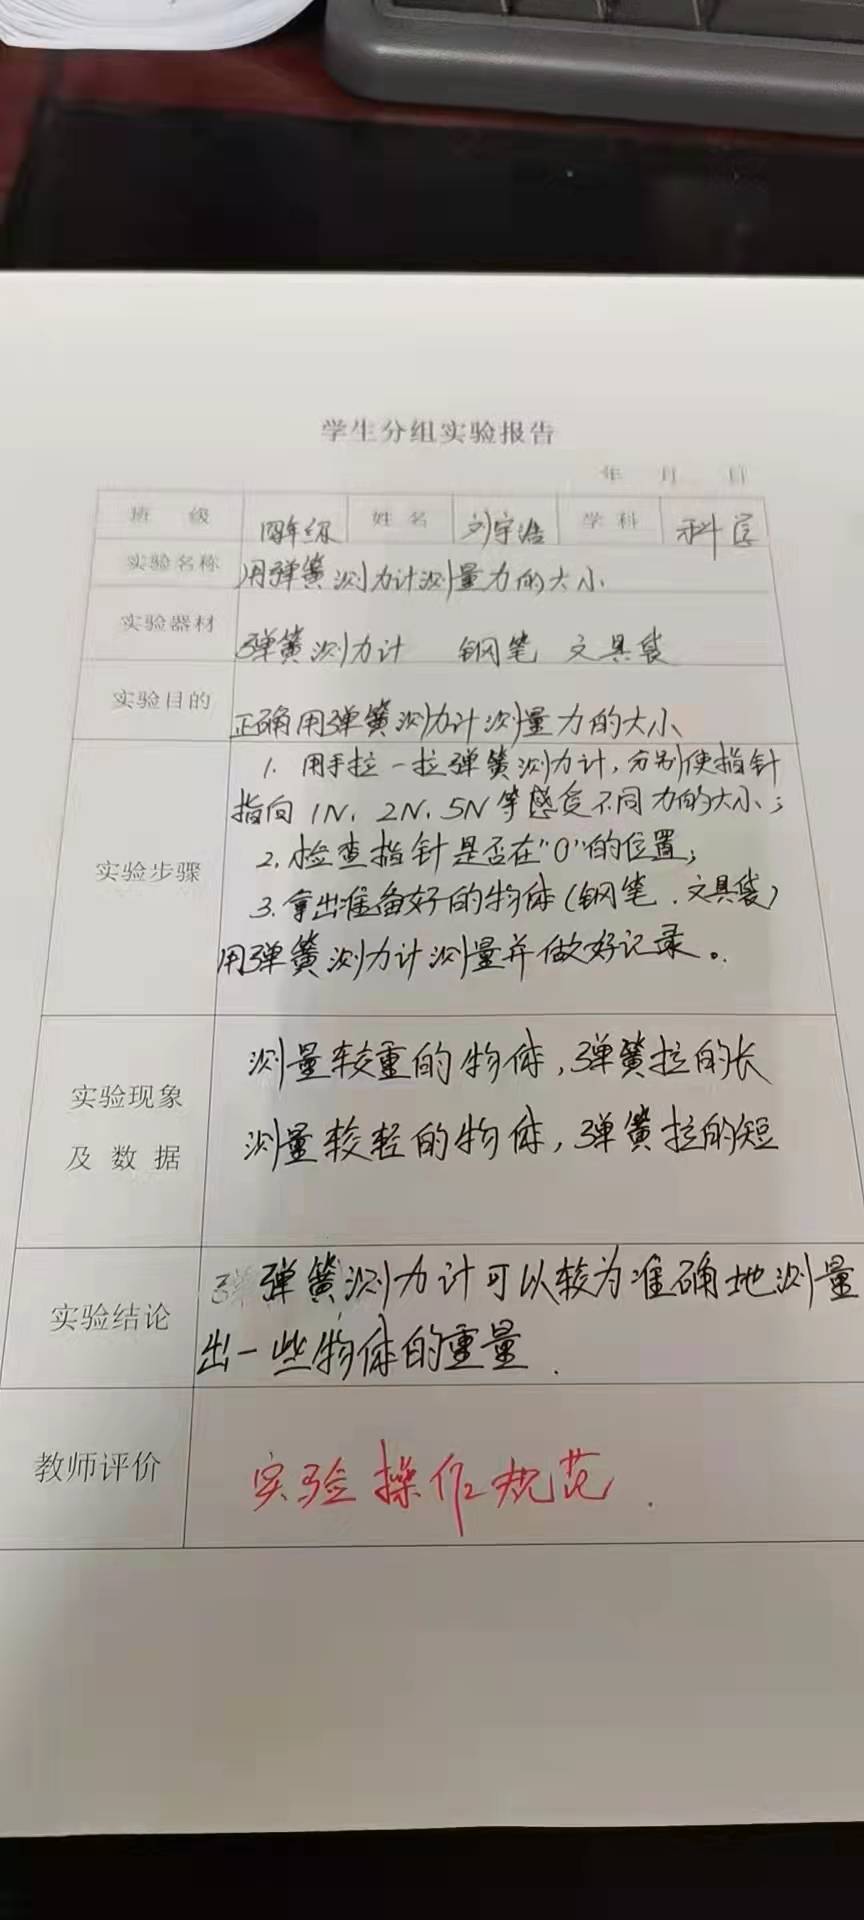 学生分组实验报告
年 月 日
班 级 四年级 姓 名 刘宇浩 学 科 科学
实验名称 用弹簧测力计测量力的大小
实验器材 弹簧测力计 钢笔 文具袋
实验目的 正确用弹簧测力计测量力的大小
1. 用手拉一拉弹簧测力计,分别使指针
指向1N、2N、5N等感受不同力的大小;
2. 检查指针是否在"0"的位置;
实验步骤
3. 拿出准备好的物体(钢笔、文具袋)
用弹簧测力计测量并做好记录。
测量较重的物体,弹簧拉的长
实验现象
及 数 据
测量较轻的物体,弹簧拉的短
弹簧测力计可以较为准确地测量
实验结论
出一些物体的重量.
教师评价 实验操作规范.